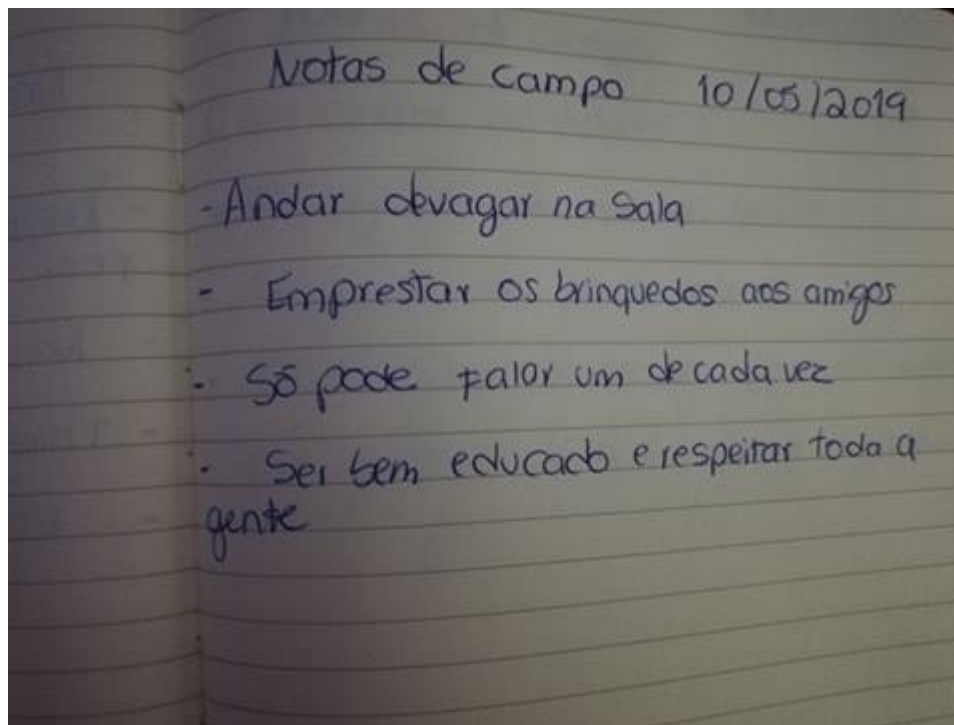 Notas de campo 10/05/2019
- Andar devagar na sala
- Emprestar os brinquedos aos amigos
- Só pode falar um de cada vez
- Ser bem educado e respeitar toda a
gente